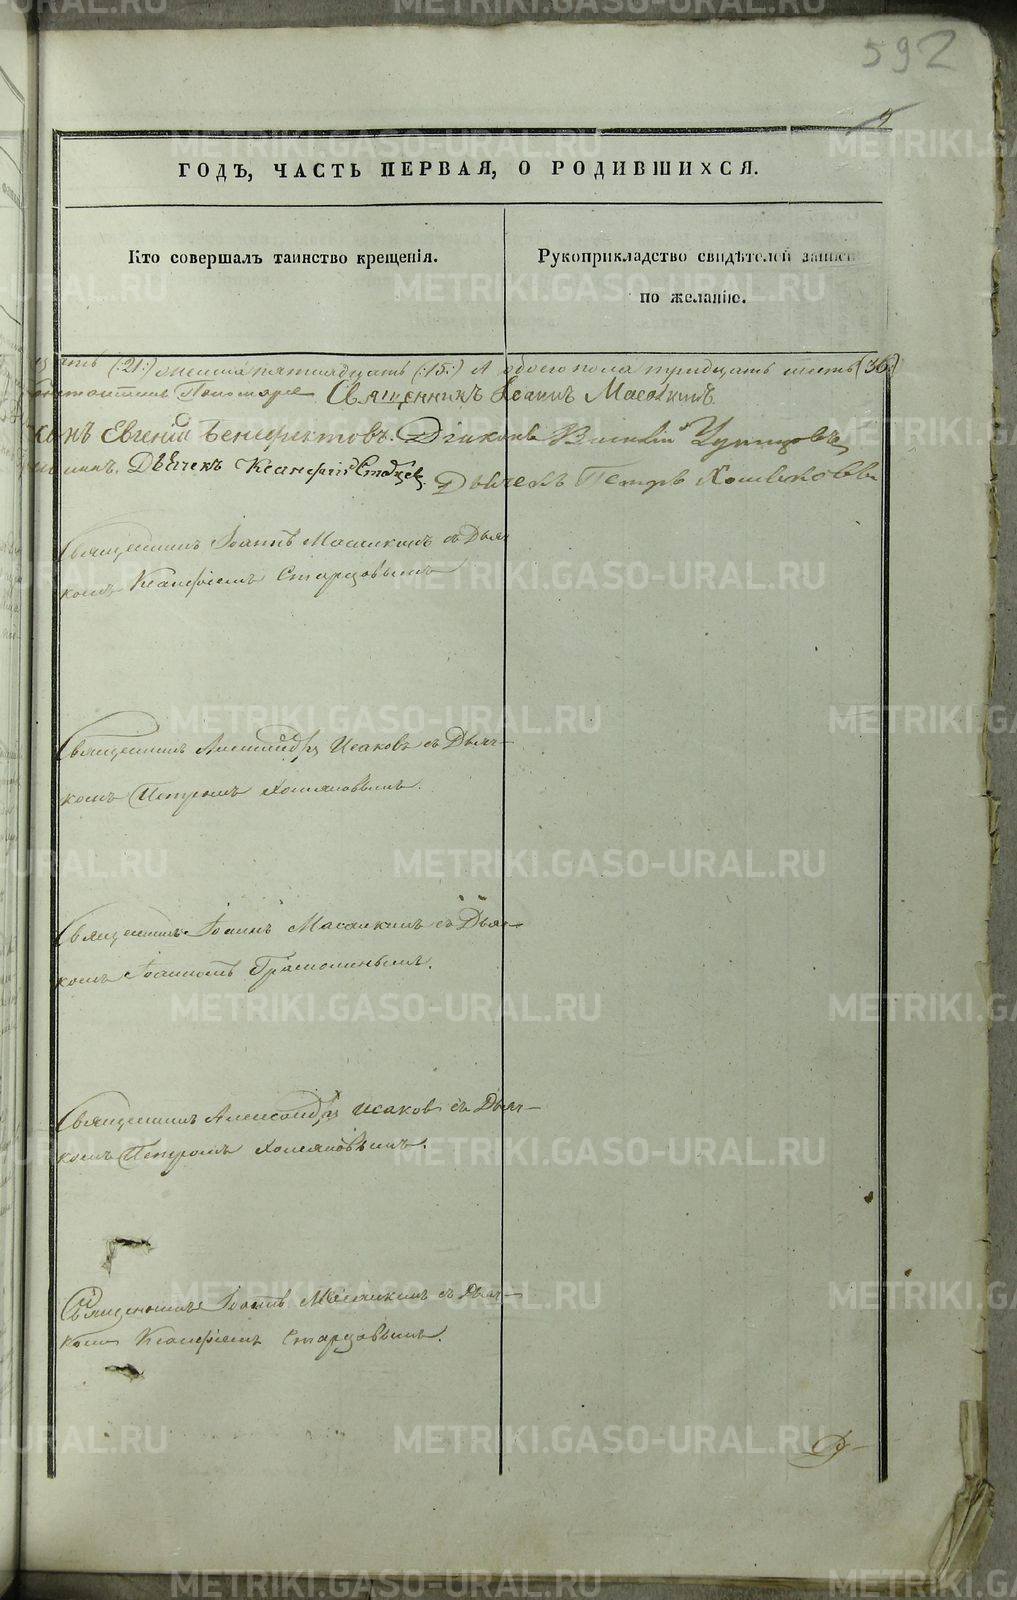 592
ГОДЪ, ЧАСТЬ ПЕРВАЯ, О РОДИВШИХСЯ.
Кто совершалъ таинство крещенія.
Рукоприкладство свидѣтелей записи
по желанію.
(:21:) женска пятнадцать (:15:) А обоего пола тридцать шесть (36:)
Священникъ Іоаннъ Масалкинъ
Евгеній Бенефиктовъ. Діаконъ Василій
Дьячекъ Ксанфій Дьячекъ Петръ
Священникъ Іоаннъ Масалкинъ съ Дьяч
комъ Ксанфіемъ Старцовымъ
Священникъ Александръ Исаковъ съ Дьяч-
комъ Петромъ Хомяковымъ.
Священникъ Іоаннъ Масалкинъ съ Дьяч-
комъ Іоанномъ
Священникъ Александръ Исаковъ съ Дьяч-
комъ Петромъ Хомяковымъ.
Священникъ Іоаннъ Масалкинъ съ Дьяч-
комъ Ксанфіемъ Старцовымъ.
METRIKI.GASO-URAL.RU